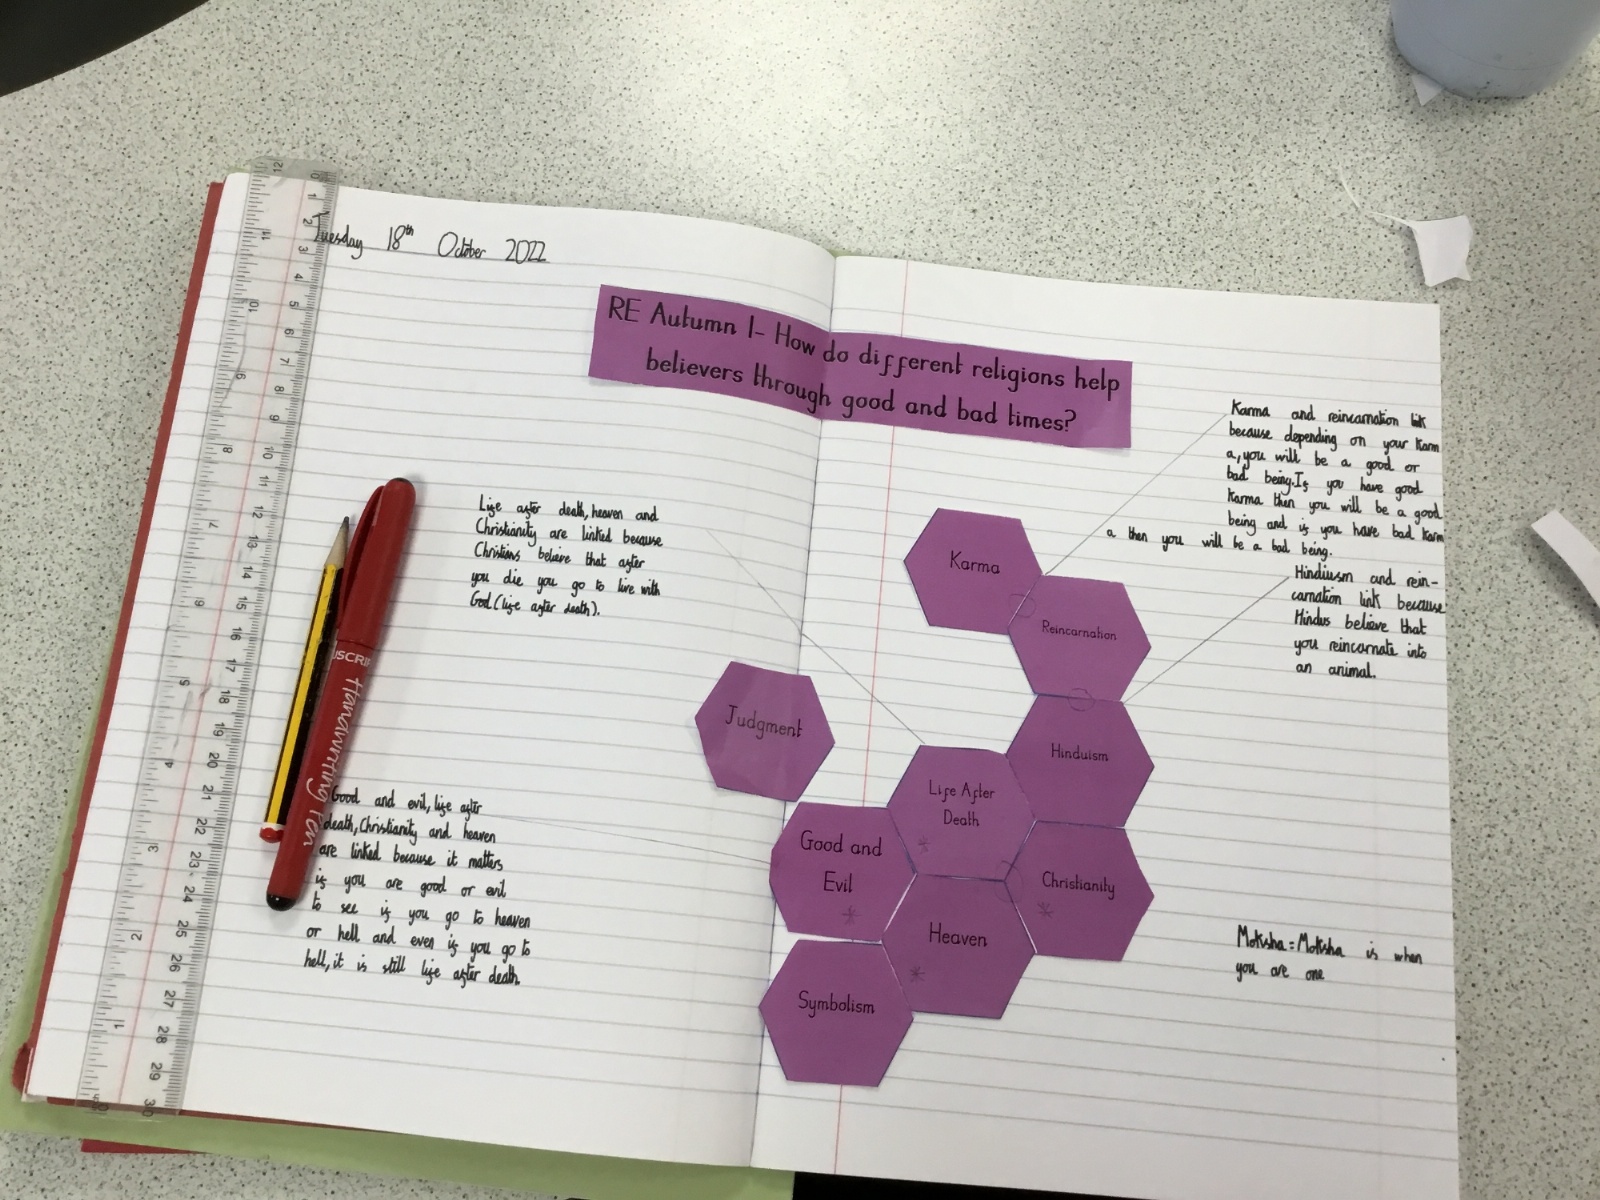 Tuesday 18th October 2022
RE Autumn 1- How do different religions help
believers through good and bad times?
Life after death, heaven and
Christianity are linked because
Christians believe that after
you die you go to live with
God (life after death).
Good and evil, life after
death, Christianity and heaven
are linked because it matters
if you are good or evil
to see if you go to heaven
or hell and even if you go to
hell, it is still life after death.
Karma and reincarnation link
because depending on your Karm
a, you will be a good or
bad being. If you have good
Karma then you will be a good
being and if you have bad Karm
a then you will be a bad being.
Hindiusm and rein-
carnation link because
Hindus believe that
you reincarnate into
an animal.
Moksha = Moksha is when
you are one
Karma
Reincarnation
Judgment
Hinduism
Life After
Death
Good and
Evil
Christianity
Heaven
Symbolism
Handwriting Pen
0 1 2 3 4 5 6 7 8 9 10 11 12 13 14 15 16 17 18 19 20 21 22 23 24 25 26 27 28 29 30